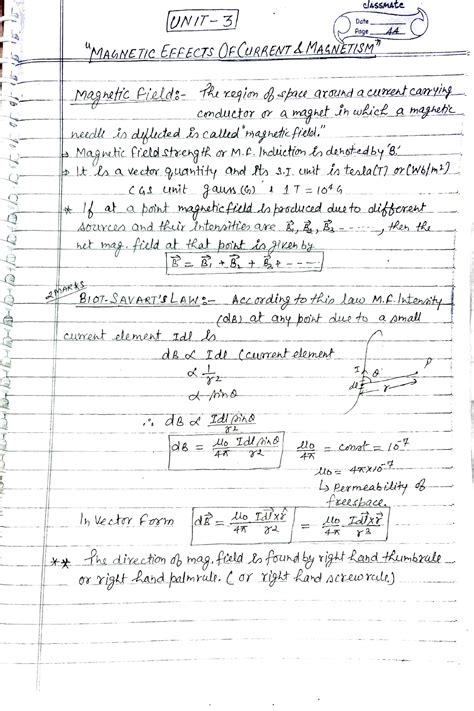 classmate
Date
Page 44
UNIT-3
"MAGNETIC EFFECTS OF CURRENT & MAGNETISM"
Magnetic field:- The region of space around a current carrying
conductor or a magnet in which a magnetic
needle is deflected is called "magnetic field."
→ Magnetic field strength or M.F. Induction is denoted by 'B'.
→ It is a vector quantity and its S.I. unit is tesla(T) or (Wb/m²)
CGS unit gauss (G) & 1T = 10⁴G
* If at a point magnetic field is produced due to different
sources and their intensities are B⃗₁, B⃗₂, B⃗₃ ------, then the
net mag. field at that point is given by
B⃗ = B⃗₁ + B⃗₂ + B⃗₃ + -----
2 MARKS
BIOT-SAVART'S LAW:- According to this law M.F. Intensity
(dB) at any point due to a small
current element Idl is
dB ∝ Idl (current element
∝ 1/r²
∝ sinθ
I θ P
dl r
∴ dB ∝ Idl sinθ/r²
dB = μ₀/4π Idl sinθ/r² μ₀/4π = const = 10⁻⁷
μ₀ = 4π×10⁻⁷
↳ Permeability of
freespace.
In Vector Form dB⃗ = μ₀/4π Idl⃗×r̂/r² = μ₀/4π Idl⃗×r⃗/r³
** The direction of mag. field is found by right hand thumb rule
or right hand palm rule. (or right hand screw rule)